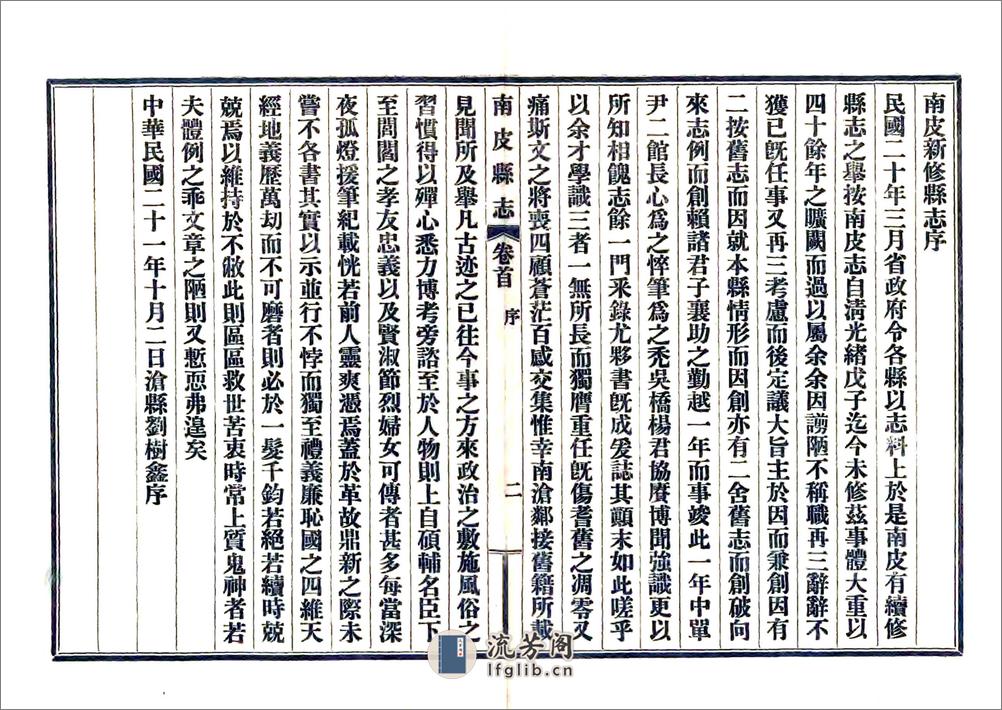 南皮新修縣志序
民國二十年三月省政府令各縣以志料上於是南皮有續修
縣志之舉按南皮志自淸光緒戊子迄今未修茲事體大重以
四十餘年之曠闕而過以屬余余因謭陋不稱職再三辭辭不
獲已旣任事又再三考慮而後定議大旨主於因而兼創因有
二按舊志而因就本縣情形而因創亦有二舍舊志而創破向
來志例而創賴諸君子襄助之勤越一年而事竣此一年中單
尹二館長心爲之悴筆爲之禿吳橋楊君協賡博聞強識更以
所知相餽志餘一門采錄尤夥書旣成爰誌其顚末如此嗟乎
以余才學識三者一無所長而獨膺重任旣傷耆舊之凋零又
痛斯文之將喪四顧蒼茫百感交集惟幸南滄鄰接舊籍所載
南皮縣志 卷首 序 二
見聞所及舉凡古迹之已往今事之方來政治之敷施風俗之
習慣得以殫心悉力博考旁諮至於人物則上自碩輔名臣下
至閭閻之孝友忠義以及賢淑節烈婦女可傳者甚多每當深
夜孤燈援筆紀載恍若前人靈爽憑焉蓋於革故鼎新之際未
嘗不各書其實以示並行不悖而獨至禮義廉恥國之四維天
經地義歷萬劫而不可磨者則必於一髮千鈞若絕若續時兢
兢焉以維持於不敝此則區區救世苦衷時常上質鬼神者若
夫體例之乖文章之陋則又慙恧弗遑矣
中華民國二十一年十月二日滄縣劉樹鑫序
流芳阁
lfglib.cn